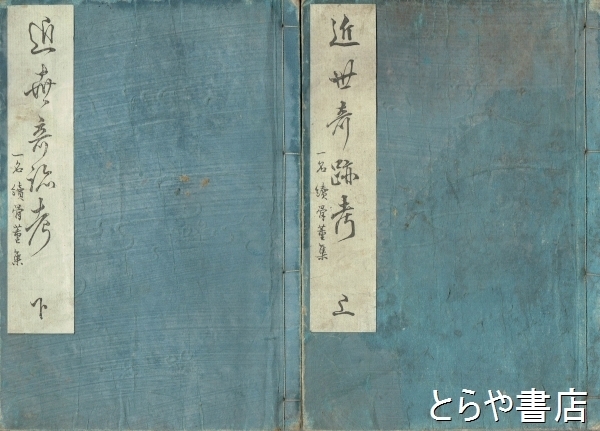 近世奇跡考
一名 續骨董集
上
近世奇跡考
一名 續骨董集
下
とらや書店